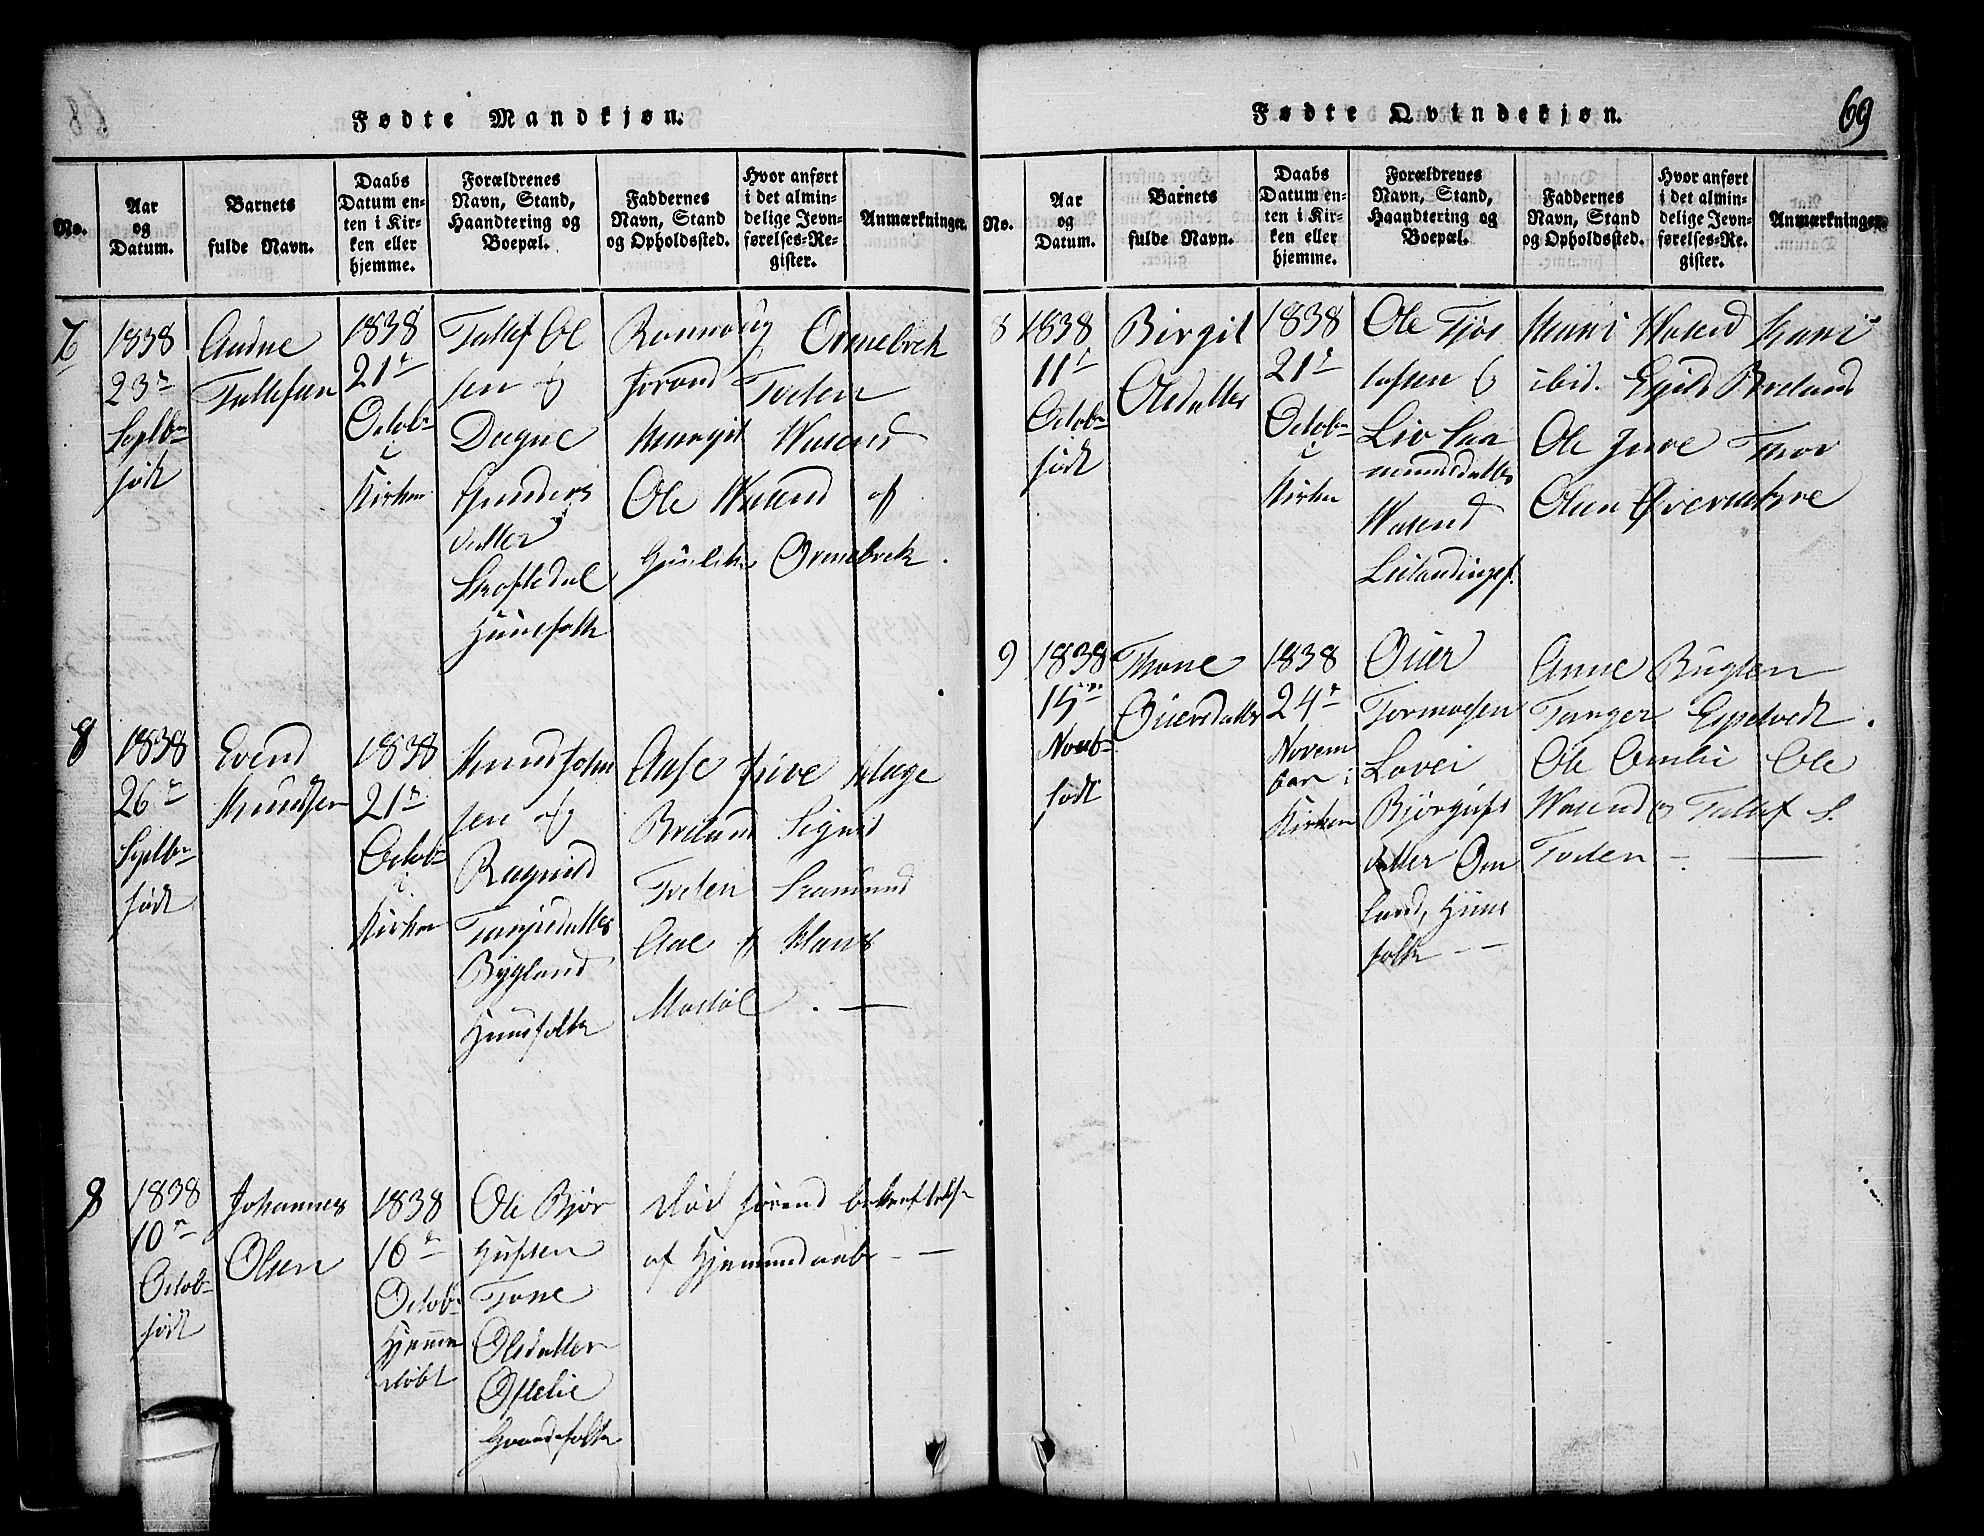 Fødte Mandkjøn.
No.
Aar
og
Datum.
Barnets
fulde Navn.
Daabs
Datum en-
ten i Kir-
ken eller
hjemme.
Forældrenes
Navn, Stand,
Haandtering og
Boepæl.
Faddernes
Navn, Stand
og Opholdssted.
Hvor anført
i det almin-
delige Jevn-
førelses-Re-
gister.
Anmærkninger.
7
1838
23de
Septbr
født
Audne
Tallefsen
1838
21de
Octobr
i
Kirken
Tallef Ol
sen og
Dagne
Gunders
datter
Skafsedal
Huusfolk
Ronnaug Ormebrek
Jorand Tveten
Margit Wasend
Ole Wasend og
Ormebrek.
8
1838
26de
Septbr
født
Evend
Knudsen
1838
21de
Octobr
i
Kirken
Knud John
sen og
Ragnild
Tarjesdatter
Bygland
Huusfolk
Aase Juve Aage
Breland Signid
Tveten Saamund
Aae og Klaus
Mostøl . —
9
1838
10de
Octobr
født
Johannes
Olsen
1838
16de
Octobr
Hjemme
døbt
Ole Bjør
gufsen
Tone
Olsdatter
Ofselie
Gaardsfolk
Død førend bekræftelse
af Hjemmedaab - —
Fødte Qvindekjøn.
69
No.
Aar
og
Datum.
Barnets
fulde Navn.
Daabs
Datum en-
ten i Kir-
ken eller
hjemme.
Forældrenes
Navn, Stand,
Haandtering og
Boepæl.
Faddernes
Navn, Stand
og Opholdssted.
Hvor anført
i det almin-
delige Jevn-
førelses-Re-
gister.
Anmærkninger.
8
1838
11de
Octobr
født
Birgit
Olsdatter
1838
21de
Octobr
i
Kirken
Ole Tjøs
tofsen &
Liv Saa
mundsdatter
Wasend
Leilændingsf.
Mari Wasend Kari
ibid. Egild Breland
Ole Juve Thor
Olsen
9
1838
15de
Novbr
født
Thone
Oiersdatter
1838
24de
Novem
ber i
Kirken
Oier
Tormodsen
Lovei
Bjørgufs
datter Om
land, Huus
folk — —
Anne Buglen
Tanger Espetvedt .
Ole Omli Ole
Wasend og Tallef S.
Tveten - . —